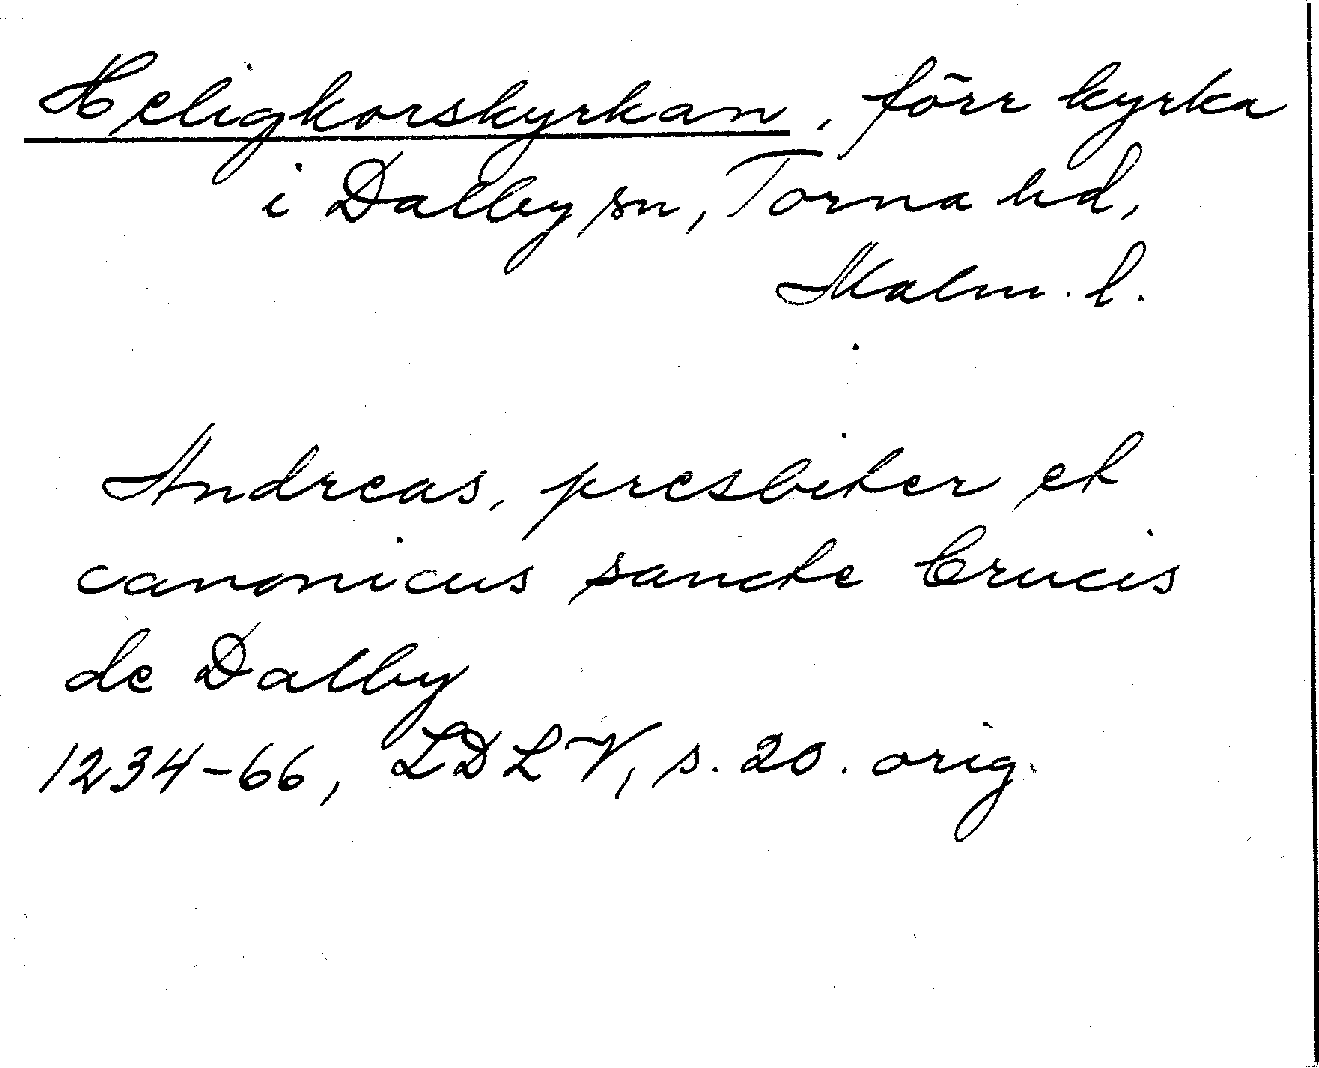 Heligkorskyrkan, förr kyrka
i Dalby sn, Torna hd,
Malm. l.
Andreas, presbiter et
canonicus sancte Crucis
de Dalby
1234-66, LDLV, s. 20. orig.